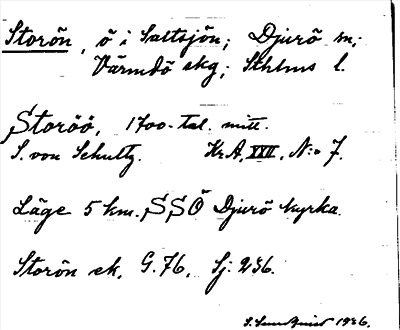 Storön, ö i Saltsjön; Djurö sn;
Värmdö skg; Sthlms l.
Storöö, 1700-tal. mitt.
S. von Schultz. Kr.A, XXII, N:o 7.
Läge 5 km. SSÖ Djurö kyrka.
Storön ek. G. 76, Sj. 236.
1936.